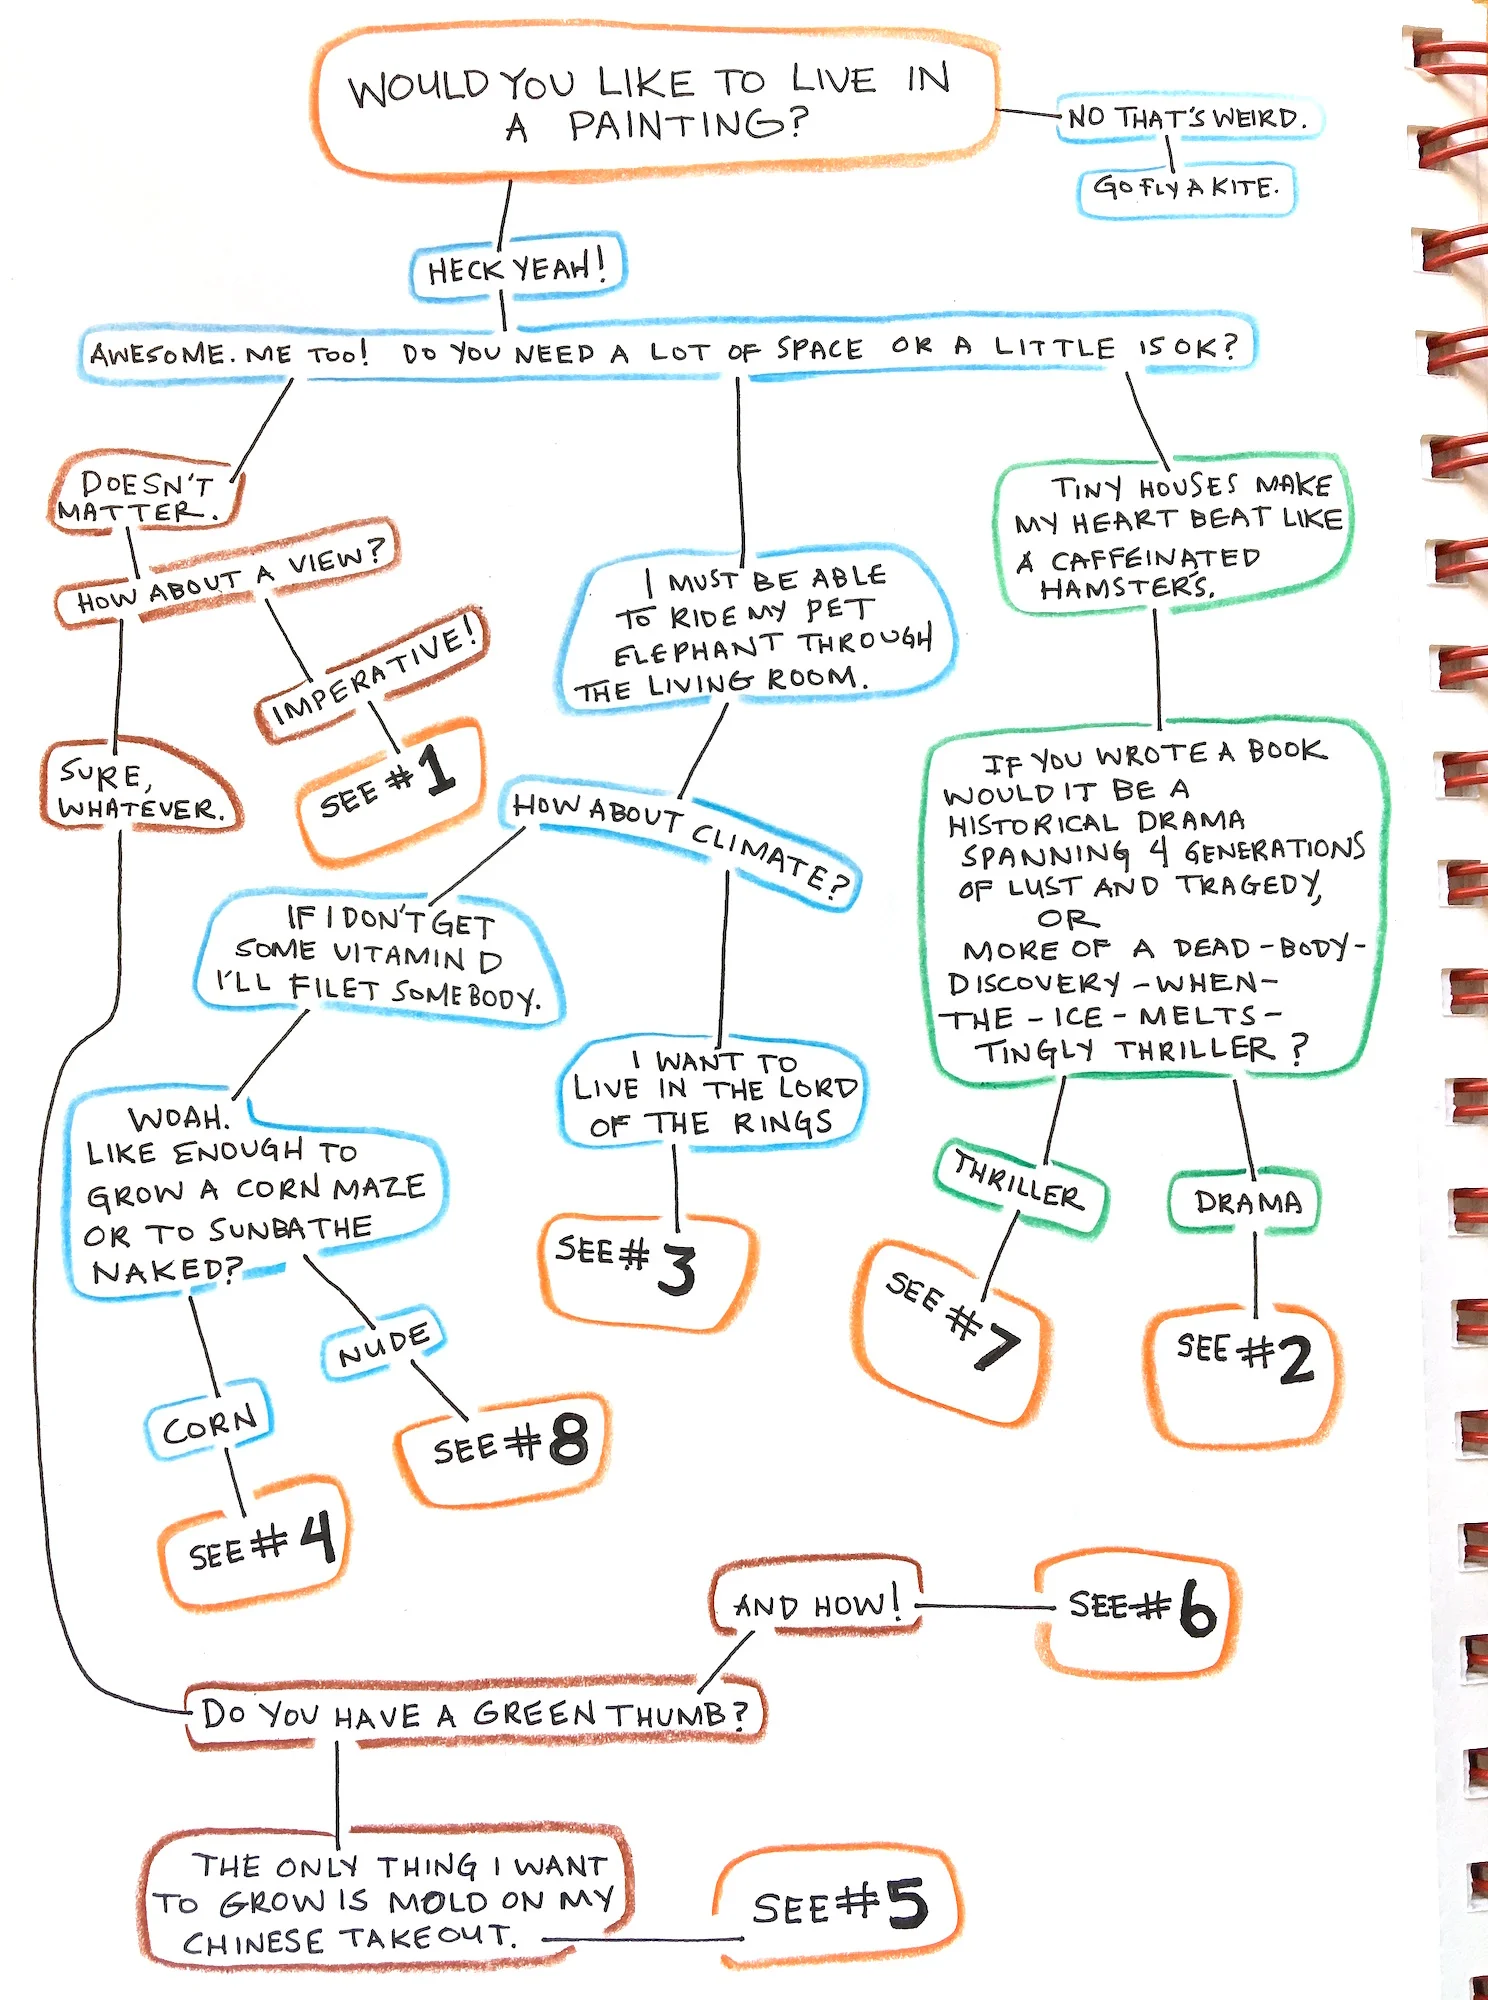 WOULD YOU LIKE TO LIVE IN
A PAINTING?
NO THAT'S WEIRD.
GO FLY A KITE.
HECK YEAH!
AWESOME. ME TOO! DO YOU NEED A LOT OF SPACE OR A LITTLE IS OK?
DOESN'T
MATTER.
HOW ABOUT A VIEW?
IMPERATIVE!
SEE #1
SURE,
WHATEVER.
I MUST BE ABLE
TO RIDE MY PET
ELEPHANT THROUGH
THE LIVING ROOM.
HOW ABOUT CLIMATE?
IF I DON'T GET
SOME VITAMIN D
I'LL FILET SOMEBODY.
WOAH.
LIKE ENOUGH TO
GROW A CORN MAZE
OR TO SUNBATHE
NAKED?
NUDE
SEE #8
CORN
SEE #4
I WANT TO
LIVE IN THE LORD
OF THE RINGS
SEE #3
TINY HOUSES MAKE
MY HEART BEAT LIKE
A CAFFEINATED
HAMSTER'S.
IF YOU WROTE A BOOK
WOULD IT BE A
HISTORICAL DRAMA
SPANNING 4 GENERATIONS
OF LUST AND TRAGEDY,
OR
MORE OF A DEAD-BODY-
DISCOVERY-WHEN-
THE-ICE-MELTS-
TINGLY THRILLER?
THRILLER
SEE #7
DRAMA
SEE #2
DO YOU HAVE A GREEN THUMB?
AND HOW!
SEE #6
THE ONLY THING I WANT
TO GROW IS MOLD ON MY
CHINESE TAKEOUT.
SEE #5